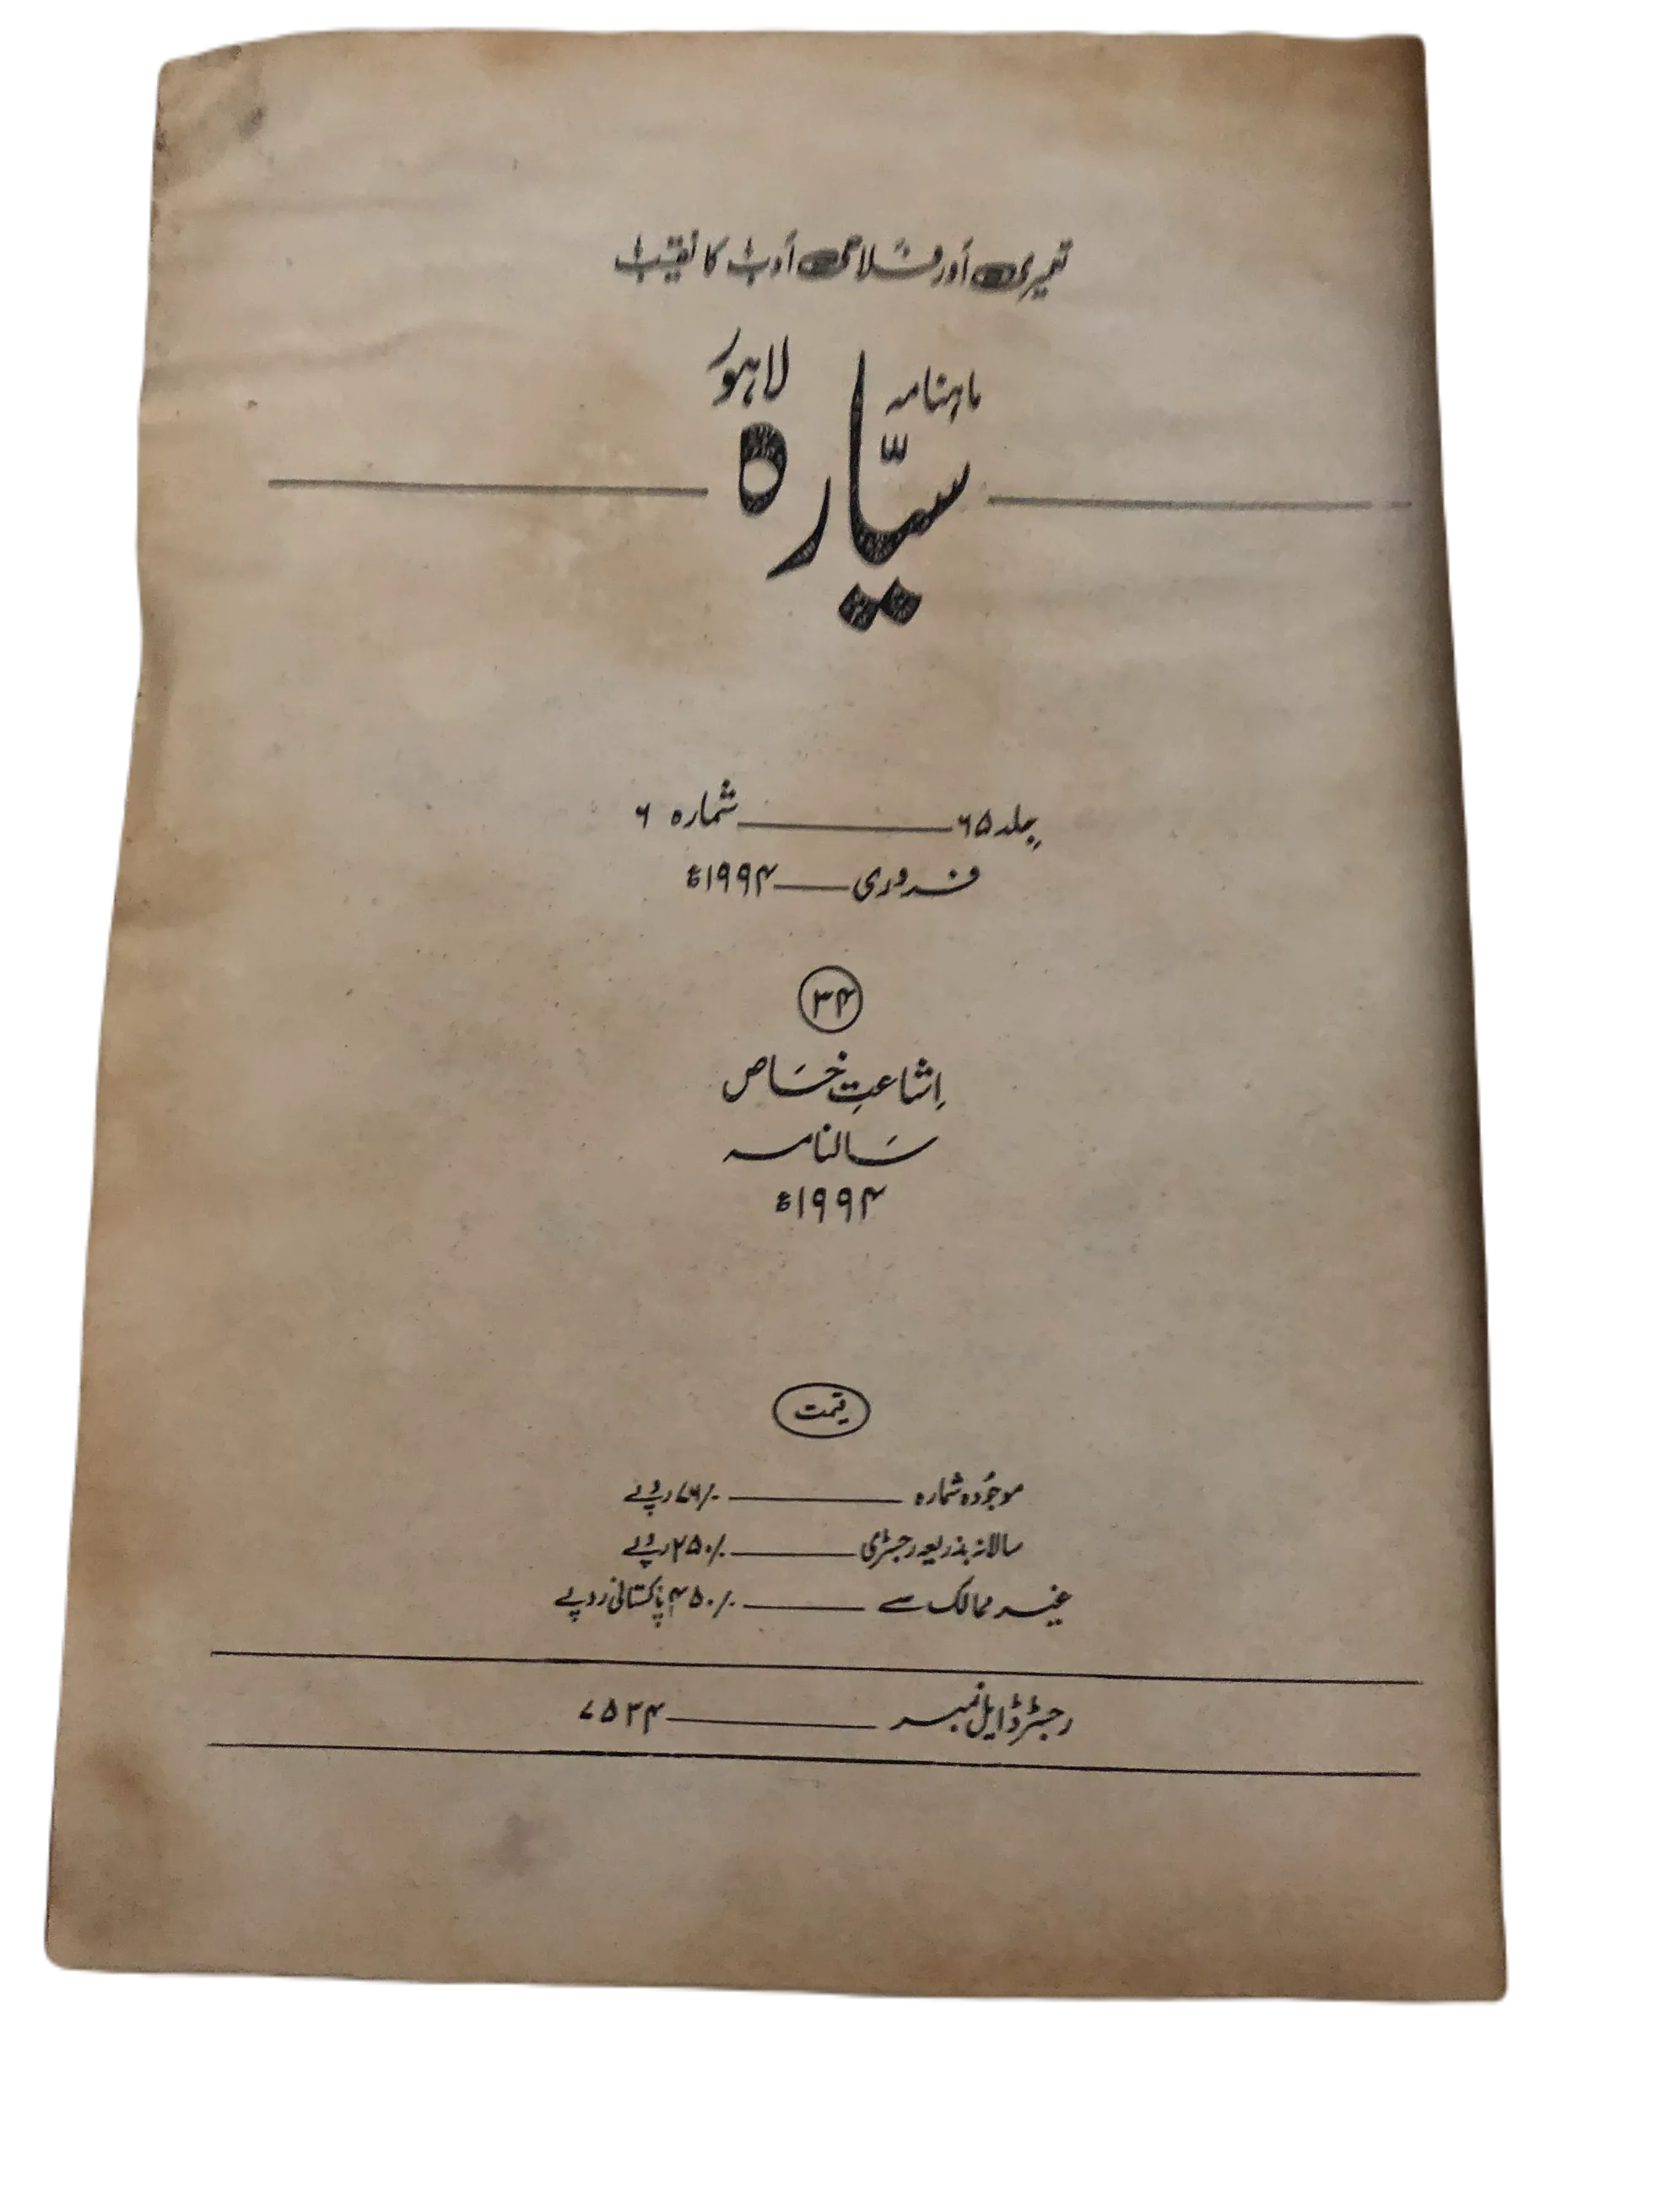 تعمیری اور فلاحی ادب کا نقیب
ماہنامہ سیّارہ لاہور
جلد ۶۵ ــــــ شمارہ ۶
فروری ــــــ ۱۹۹۴ء
۳۴
اِشاعتِ خاص
سَالنامہ
۱۹۹۴ء
قیمت
موجُودہ شمارہ ــــــ روپے
سالانہ بذریعہ رجسٹری ــــــ ۲۵۰/۰ روپے
غیر ممالک سے ــــــ ۴۵۰/۰ پاکستانی روپے
رجسٹرڈ ایل نمبر ــــــ ۷۵۳۴